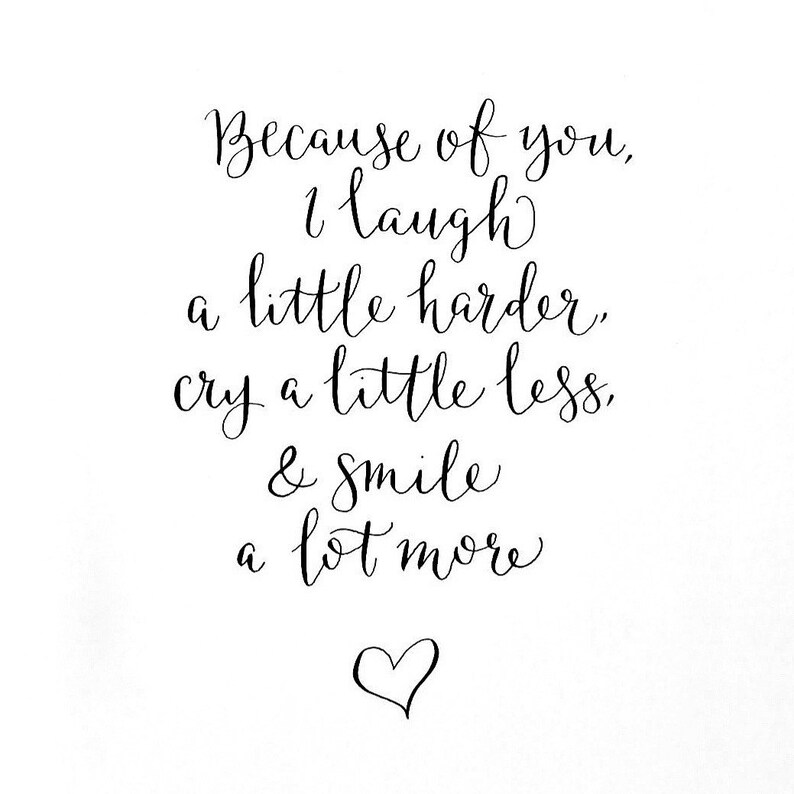 Because of you,
I laugh
a little harder,
cry a little less,
& smile
a lot more